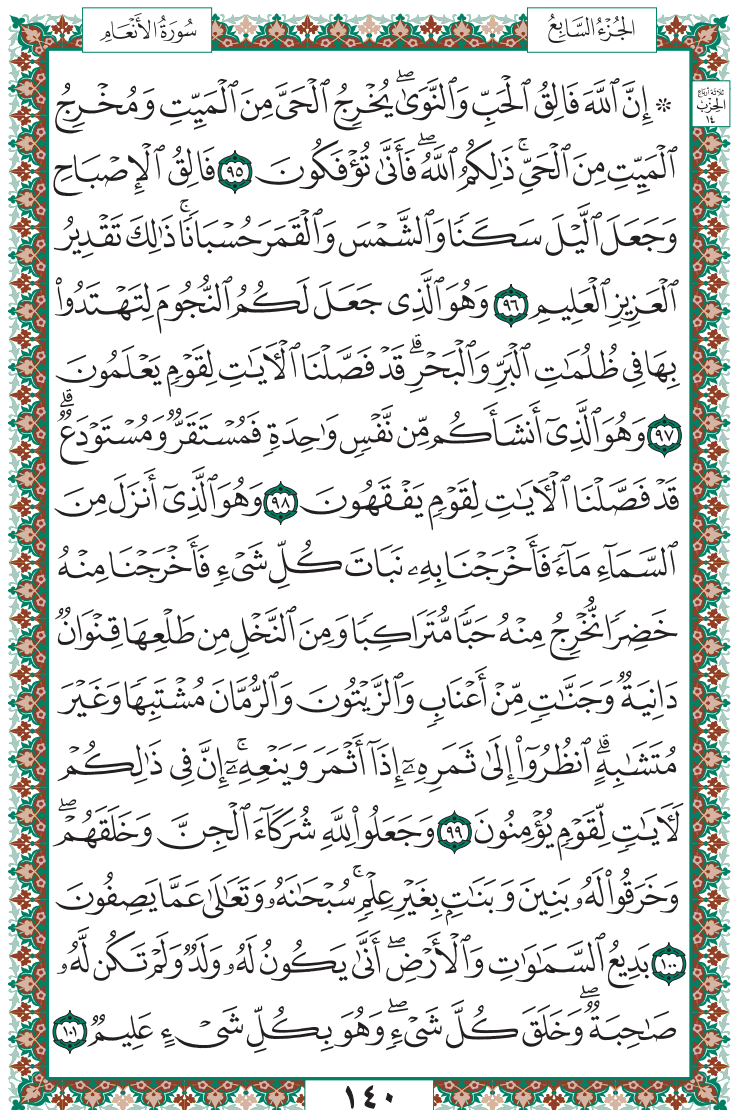 الجُزْءُ السَّابِعُ
سُورَةُ الأَنْعَامِ
ثلاثة أرباع
الحِزْب
١٤
* إِنَّ ٱللَّهَ فَالِقُ ٱلْحَبِّ وَٱلنَّوَىٰۖ يُخْرِجُ ٱلْحَىَّ مِنَ ٱلْمَيِّتِ وَمُخْرِجُ
ٱلْمَيِّتِ مِنَ ٱلْحَىِّۚ ذَٰلِكُمُ ٱللَّهُۖ فَأَنَّىٰ تُؤْفَكُونَ ٩٥ فَالِقُ ٱلْإِصْبَاحِ
وَجَعَلَ ٱلَّيْلَ سَكَنًا وَٱلشَّمْسَ وَٱلْقَمَرَ حُسْبَانًاۚ ذَٰلِكَ تَقْدِيرُ
ٱلْعَزِيزِ ٱلْعَلِيمِ ٩٦ وَهُوَ ٱلَّذِى جَعَلَ لَكُمُ ٱلنُّجُومَ لِتَهْتَدُوا۟
بِهَا فِى ظُلُمَٰتِ ٱلْبَرِّ وَٱلْبَحْرِۗ قَدْ فَصَّلْنَا ٱلْءَايَٰتِ لِقَوْمٍ يَعْلَمُونَ
٩٧ وَهُوَ ٱلَّذِىٓ أَنشَأَكُم مِّن نَّفْسٍ وَٰحِدَةٍ فَمُسْتَقَرٌّ وَمُسْتَوْدَعٌۗ
قَدْ فَصَّلْنَا ٱلْءَايَٰتِ لِقَوْمٍ يَفْقَهُونَ ٩٨ وَهُوَ ٱلَّذِىٓ أَنزَلَ مِنَ
ٱلسَّمَآءِ مَآءً فَأَخْرَجْنَا بِهِۦ نَبَاتَ كُلِّ شَىْءٍ فَأَخْرَجْنَا مِنْهُ
خَضِرًا نُّخْرِجُ مِنْهُ حَبًّا مُّتَرَاكِبًا وَمِنَ ٱلنَّخْلِ مِن طَلْعِهَا قِنْوَانٌ
دَانِيَةٌ وَجَنَّٰتٍ مِّنْ أَعْنَابٍ وَٱلزَّيْتُونَ وَٱلرُّمَّانَ مُشْتَبِهًا وَغَيْرَ
مُتَشَٰبِهٍۗ ٱنظُرُوٓا۟ إِلَىٰ ثَمَرِهِۦٓ إِذَآ أَثْمَرَ وَيَنْعِهِۦٓۚ إِنَّ فِى ذَٰلِكُمْ
لَءَايَٰتٍ لِّقَوْمٍ يُؤْمِنُونَ ٩٩ وَجَعَلُوا۟ لِلَّهِ شُرَكَآءَ ٱلْجِنَّ وَخَلَقَهُمْۖ
وَخَرَقُوا۟ لَهُۥ بَنِينَ وَبَنَٰتٍۭ بِغَيْرِ عِلْمٍۚ سُبْحَٰنَهُۥ وَتَعَٰلَىٰ عَمَّا يَصِفُونَ
١٠٠ بَدِيعُ ٱلسَّمَٰوَٰتِ وَٱلْأَرْضِۖ أَنَّىٰ يَكُونُ لَهُۥ وَلَدٌ وَلَمْ تَكُن لَّهُۥ
صَٰحِبَةٌۖ وَخَلَقَ كُلَّ شَىْءٍۖ وَهُوَ بِكُلِّ شَىْءٍ عَلِيمٌ ١٠١
١٤٠